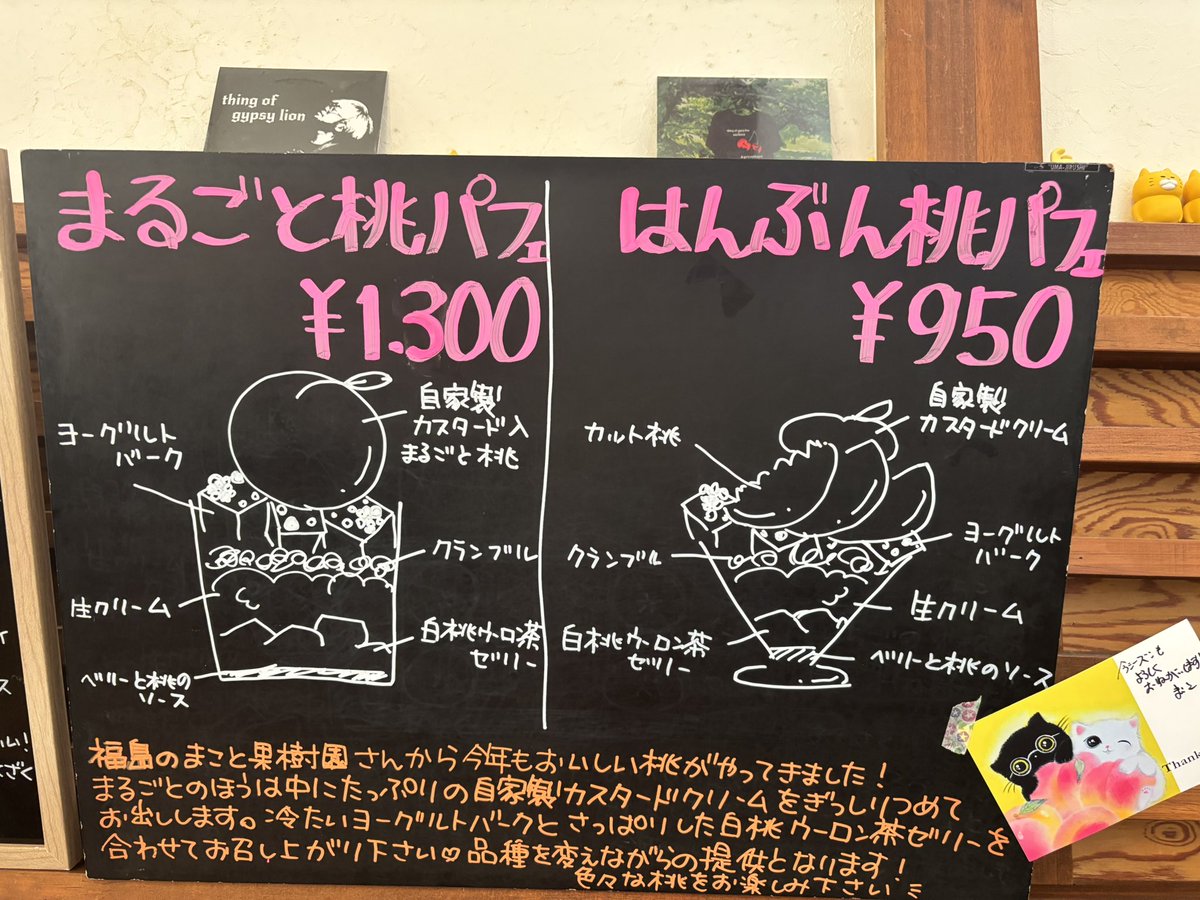 thing of
gypsy lion
"UMA-JIRUSHI"
まるごと桃パフェ
¥1.300
自家製
カスタード入
まるごと桃
ヨーグルト
バーク
クランブル
生クリーム
白桃ウーロン茶
ゼリー
ベリーと桃の
ソース
はんぶん桃パフェ
¥950
自家製
カスタードクリーム
カルト桃
ヨーグルト
バーク
クランブル
生クリーム
白桃ウーロン茶
ゼリー
ベリーと桃のソース
福島のまこと果樹園さんから今年もおいしい桃がやってきました!
まるごとのほうは中にたっぷりの自家製カスタードクリームをぎっしりつめて
お出しします。冷たいヨーグルトバークとさっぱりした白桃ウーロン茶ゼリーを
合わせてお召し上がり下さい♡品種を変えながらの提供となります!
色々な桃をお楽しみ下さい
今シーズンも
よろしく
Thank